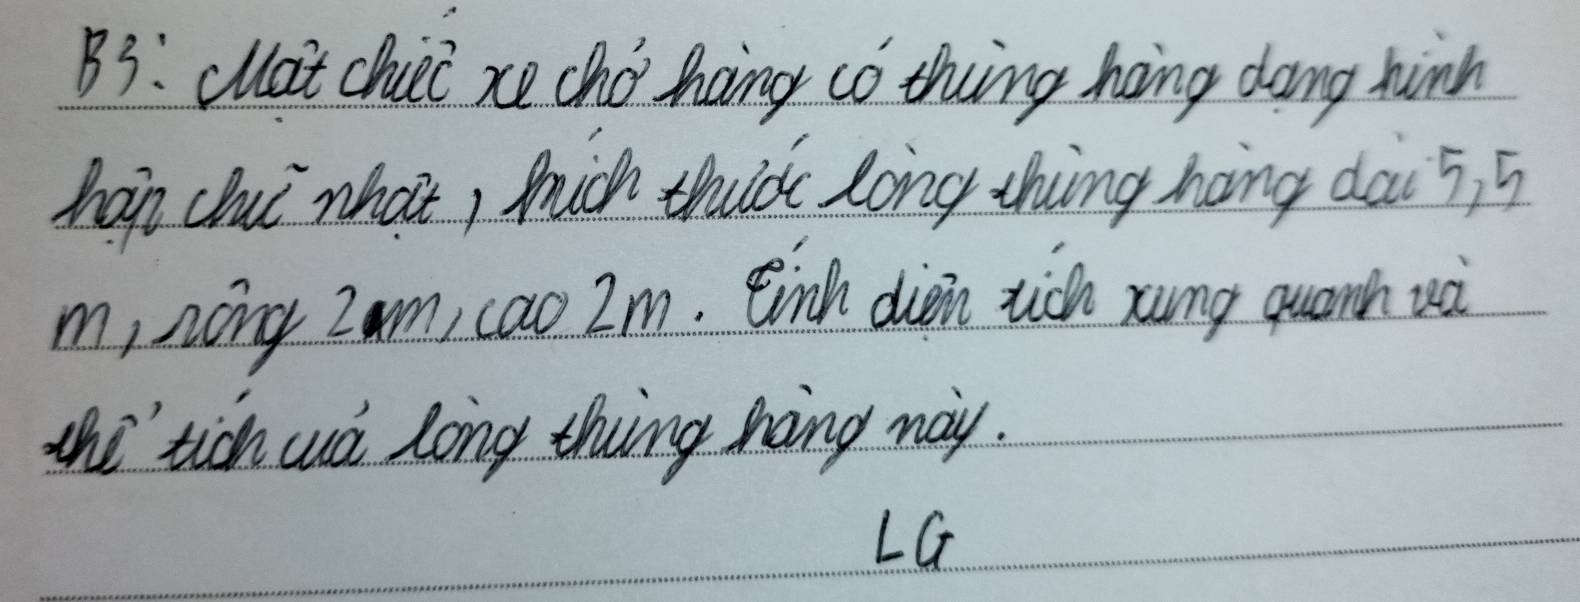 B3: Một chiếc xe chở hàng có thùng hàng dạng hình
hộp chữ nhật, kích thước lòng thùng hàng dài 5,5
m, rông 2m, cao 2m. Tính diện tích xung quanh và
thể tích của lòng thùng hàng này.
LG